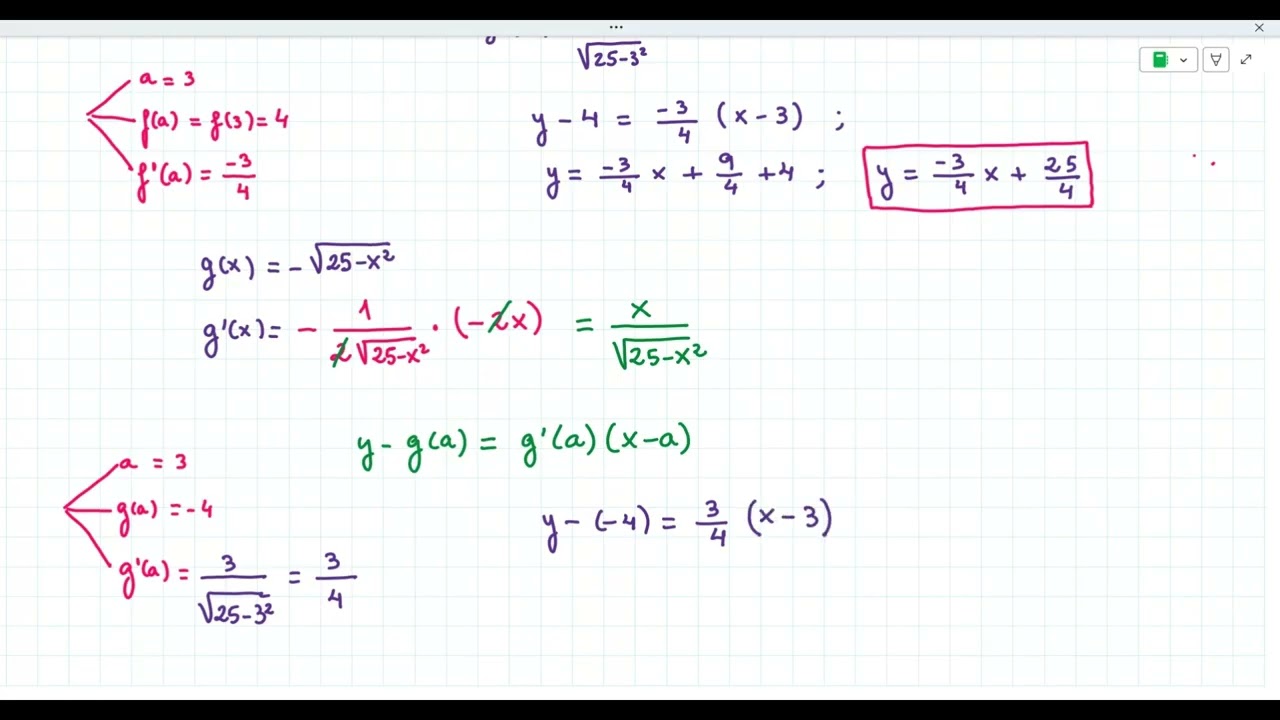 √25-3²
a = 3
f(a) = f(3) = 4
f'(a) = -3/4
y - 4 = -3/4 (x - 3) ;
y = -3/4 x + 9/4 + 4 ; y = -3/4 x + 25/4
g(x) = -√25-x²
g'(x) = - 1/2√25-x² · (-2x) = x/√25-x²
y - g(a) = g'(a) (x-a)
a = 3
g(a) = -4
g'(a) = 3/√25-3² = 3/4
y - (-4) = 3/4 (x - 3)